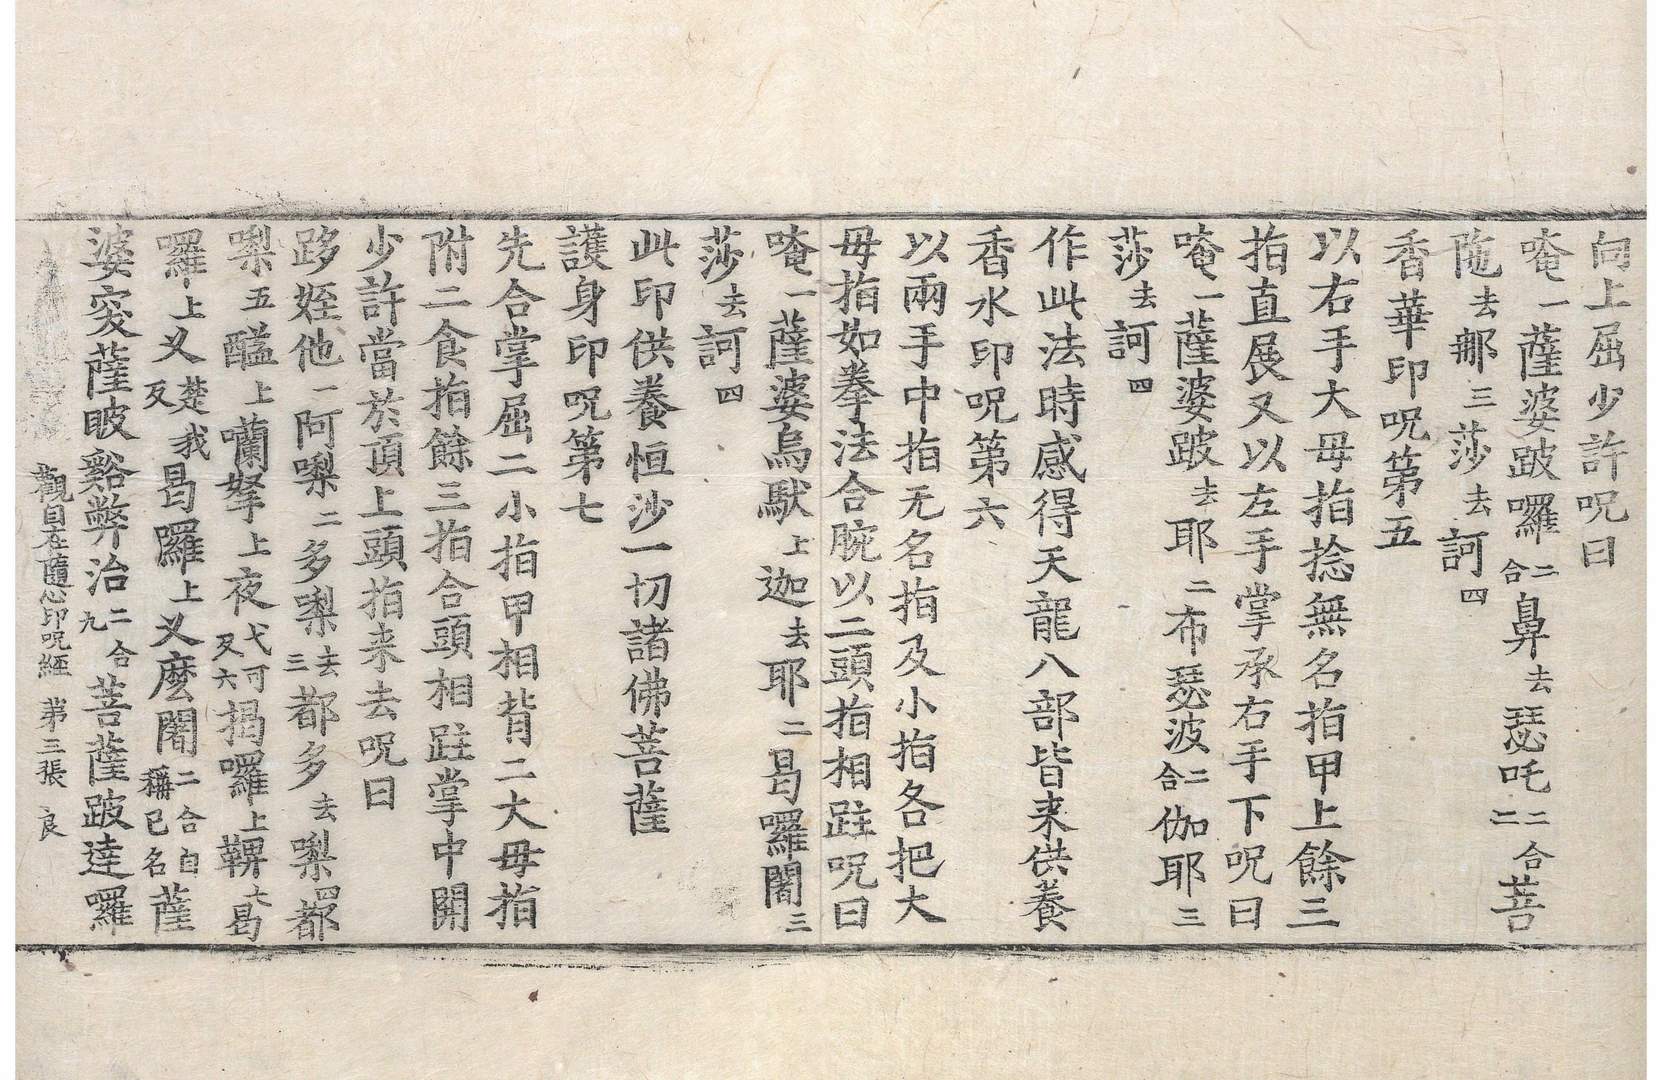 向上屈少許呪曰
唵一薩婆跛囉二合鼻去瑟吒二合二菩
陁去那三莎去訶四
香華印呪第五
以右手大母指捻無名指甲上餘三
指直展又以左手掌承右手下呪曰
唵一薩婆跛去耶二布瑟波二合伽耶三
莎去訶四
作此法時感得天龍八部皆来供養
香水印呪第六
以兩手中指无名指及小指各把大
母指如拳法合腕以二頭指相跓呪曰
唵一薩婆烏馱上迦去耶二曷囉闍三
莎去訶四
此印供養恒沙一切諸佛菩薩
護身印呪第七
先合掌屈二小指甲相背二大母指
附二食指餘三指合頭相跓掌中開
少許當於頂上頭指来去呪曰
跢姪他一阿㗚二多㗚去三都多去㗚四都
㗚五醯上囒拏上夜弋可反六揭囉上鞞七曷
囉上叉楚我反曷囉上叉麼闍二合自稱已名薩
婆突薩䟦谿弊治二合九菩薩跛達囉
觀自在隨心印呪經 第三張 良